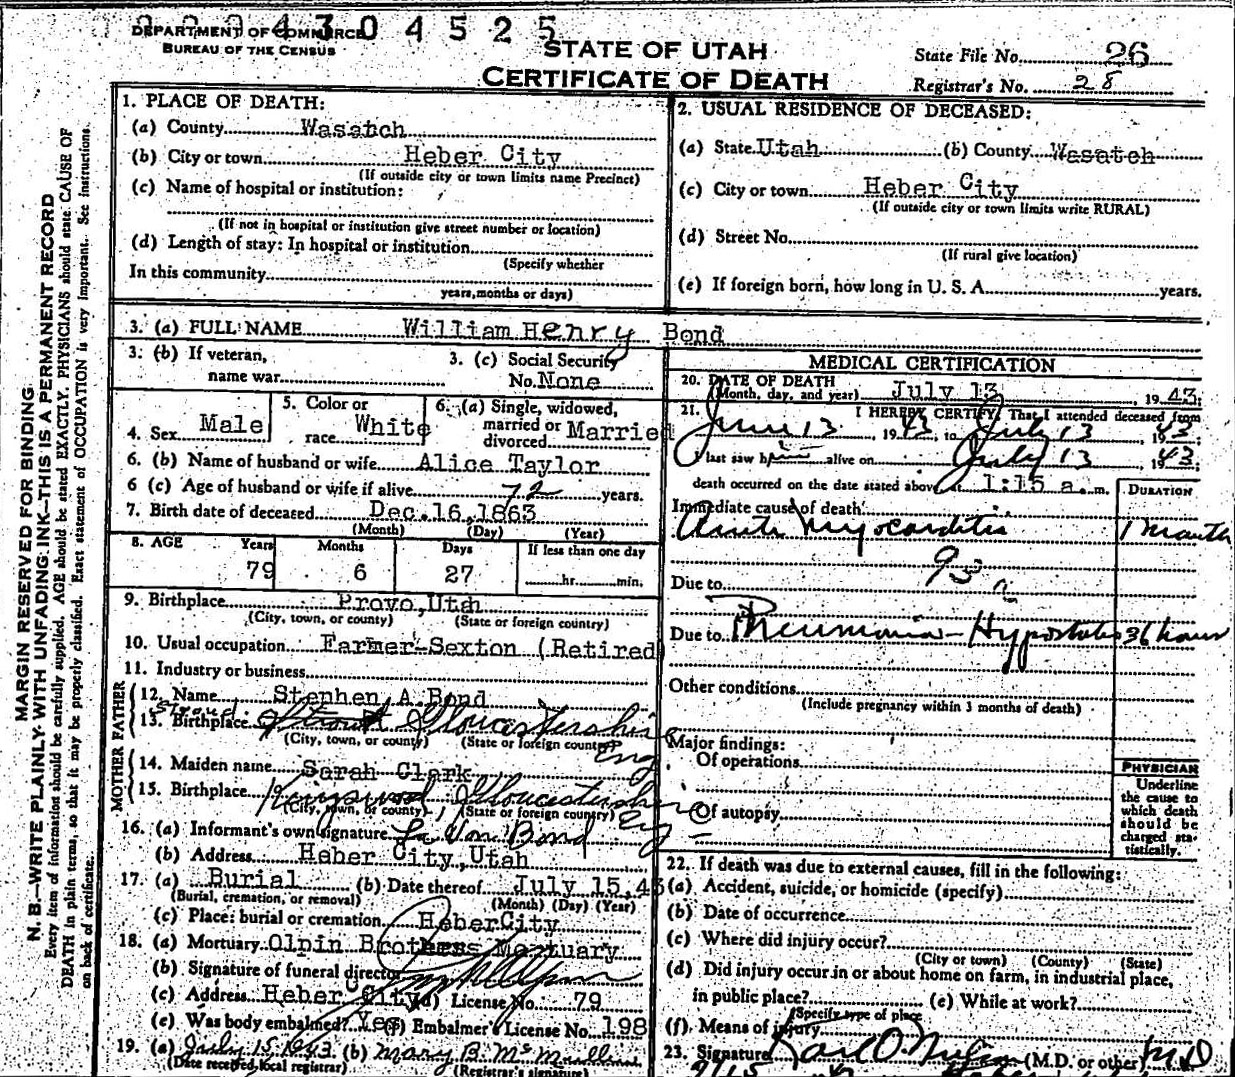 DEPARTMENT OF COMMERCE
BUREAU OF THE CENSUS
4 3 0 4 5 2 5
STATE OF UTAH
CERTIFICATE OF DEATH
State File No. 26
Registrar's No. 28
MARGIN RESERVED FOR BINDING
N. B.—WRITE PLAINLY WITH UNFADING INK—THIS IS A PERMANENT RECORD
Every item of information should be carefully supplied. AGE should be stated EXACTLY. PHYSICIANS should state CAUSE OF
DEATH in plain terms, so that it may be properly classified. Exact statement of OCCUPATION is very important. See instructions
on back of certificate.
1. PLACE OF DEATH:
(a) County Wasatch
(b) City or town Heber City
(If outside city or town limits name Precinct)
(c) Name of hospital or institution:
(If not in hospital or institution give street number or location)
(d) Length of stay: In hospital or institution
(Specify whether
In this community
years, months or days)
2. USUAL RESIDENCE OF DECEASED:
(a) State Utah (b) County Wasatch
(c) City or town Heber City
(If outside city or town limits write RURAL)
(d) Street No.
(If rural give location)
(e) If foreign born, how long in U. S. A. years.
3. (a) FULL NAME William Henry Bond
3. (b) If veteran, name war
3. (c) Social Security No. None
4. Sex Male
5. Color or race White
6. (a) Single, widowed, married or divorced Married
6. (b) Name of husband or wife Alice Taylor
6 (c) Age of husband or wife if alive 72 years.
7. Birth date of deceased Dec. 16, 1863
(Month) (Day) (Year)
8. AGE Years Months Days If less than one day
79 6 27 hr. min.
9. Birthplace Provo, Utah
(City, town, or county) (State or foreign country)
10. Usual occupation Farmer-Sexton (Retired
11. Industry or business
FATHER
12. Name Stephen A Bond
Stroud
13. Birthplace Gloucestershire Eng
(City, town, or county) (State or foreign country)
MOTHER
14. Maiden name Sarah Clark
15. Birthplace Kingswood, Gloucestershire Eng
(City, town, or county) (State or foreign country)
16. (a) Informant's own signature La Von Bond
(b) Address Heber City, Utah
17. (a) Burial (b) Date thereof July 15, 43
(Burial, cremation, or removal) (Month) (Day) (Year)
(c) Place: burial or cremation Heber City
18. (a) Mortuary Olpin Brothers Mortuary
(b) Signature of funeral director
(c) Address Heber City (d) License No. 79
(e) Was body embalmed? Yes (f) Embalmer's License No. 198
19. (a) July 15 1943 (b) Mary B. McMullin
(Date received local registrar) (Registrar's signature)
MEDICAL CERTIFICATION
20. DATE OF DEATH
(Month, day, and year) July 13, 1943.
21. I HEREBY CERTIFY, That I attended deceased from
June 13, 1943, to July 13, 1943;
I last saw him alive on July 13, 1943;
death occurred on the date stated above, at 1:15 a. m.
DURATION
Immediate cause of death
Acute Myocarditis 1 Month
93
Due to
Due to Pneumonia - Hypostatic 36 hours
Other conditions
(Include pregnancy within 3 months of death)
Major findings:
Of operations
Of autopsy
PHYSICIAN
Underline
the cause to
which death
should be
charged sta-
tistically.
22. If death was due to external causes, fill in the following:
(a) Accident, suicide, or homicide (specify)
(b) Date of occurrence
(c) Where did injury occur?
(City or town) (County) (State)
(d) Did injury occur in or about home on farm, in industrial place,
in public place? (e) While at work?
(Specify type of place
(f). Means of injury
23. Signature Karl O. (M.D. or other) MD